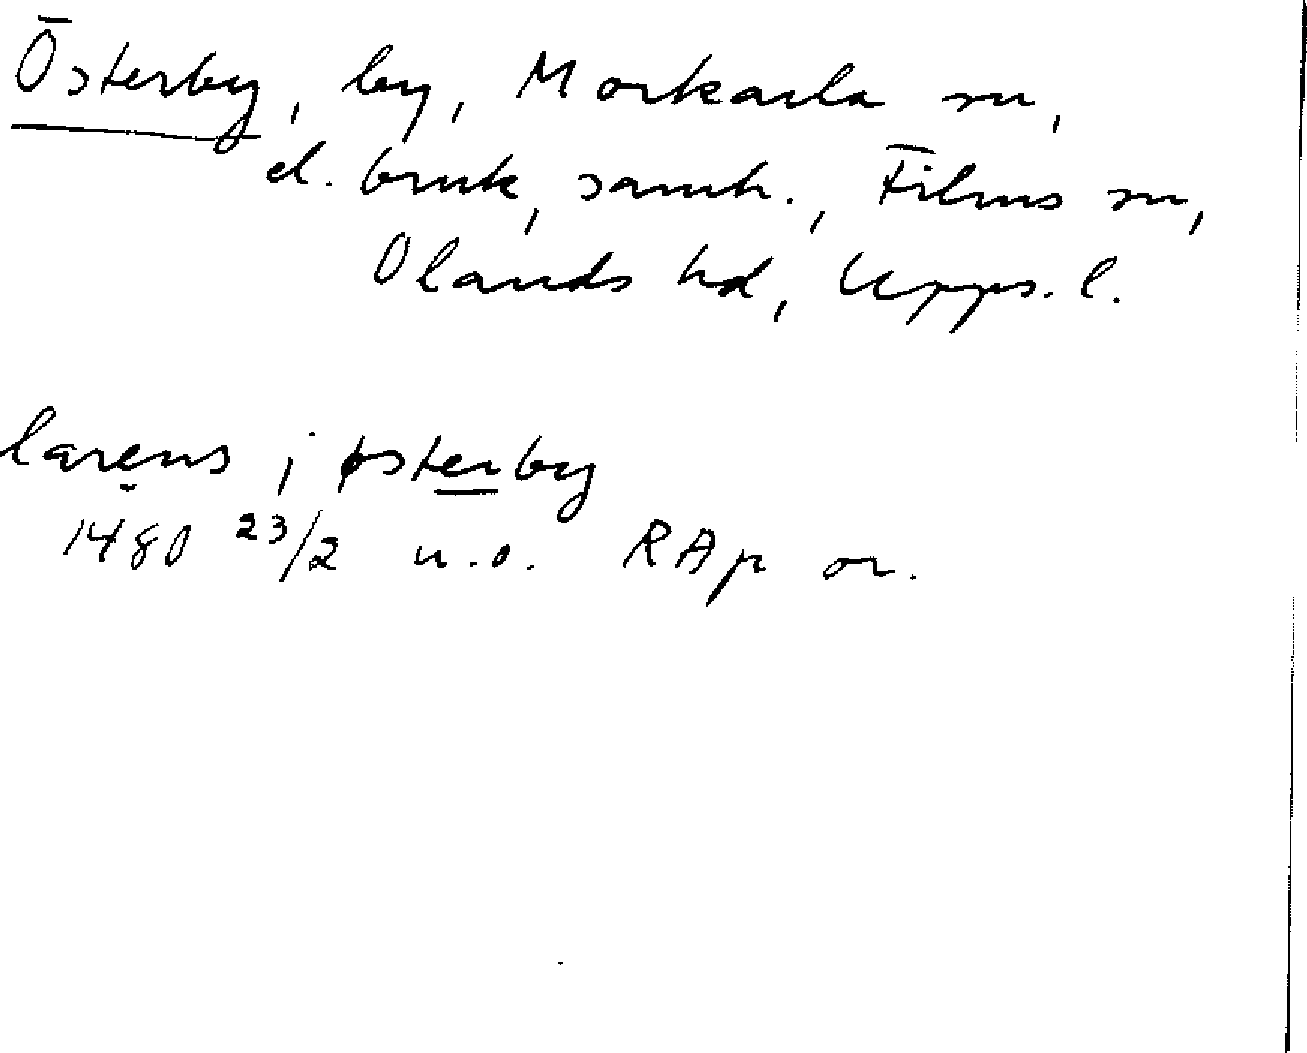 Österby, by, Morkarla sn,
el. bruk, samh., Films sn,
Olands hd, Upps. l.
larens i østerby
1480 23/2 u.o. RAp or.